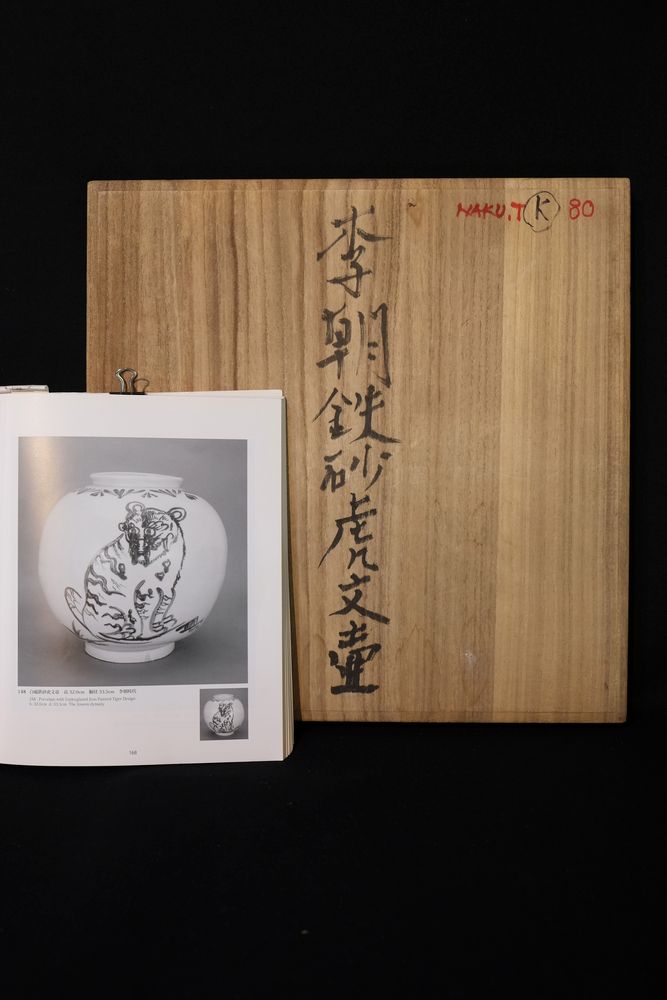 NAKU.T K 80
李朝鉄砂虎文壷
148 白磁鉄砂虎文壺 高:32.0cm 胴径:33.5cm 李朝時代
148. Porcelain with Underglazed Iron Painted Tiger Design
h: 32.0cm d: 33.5cm The Joseon dynasty
168